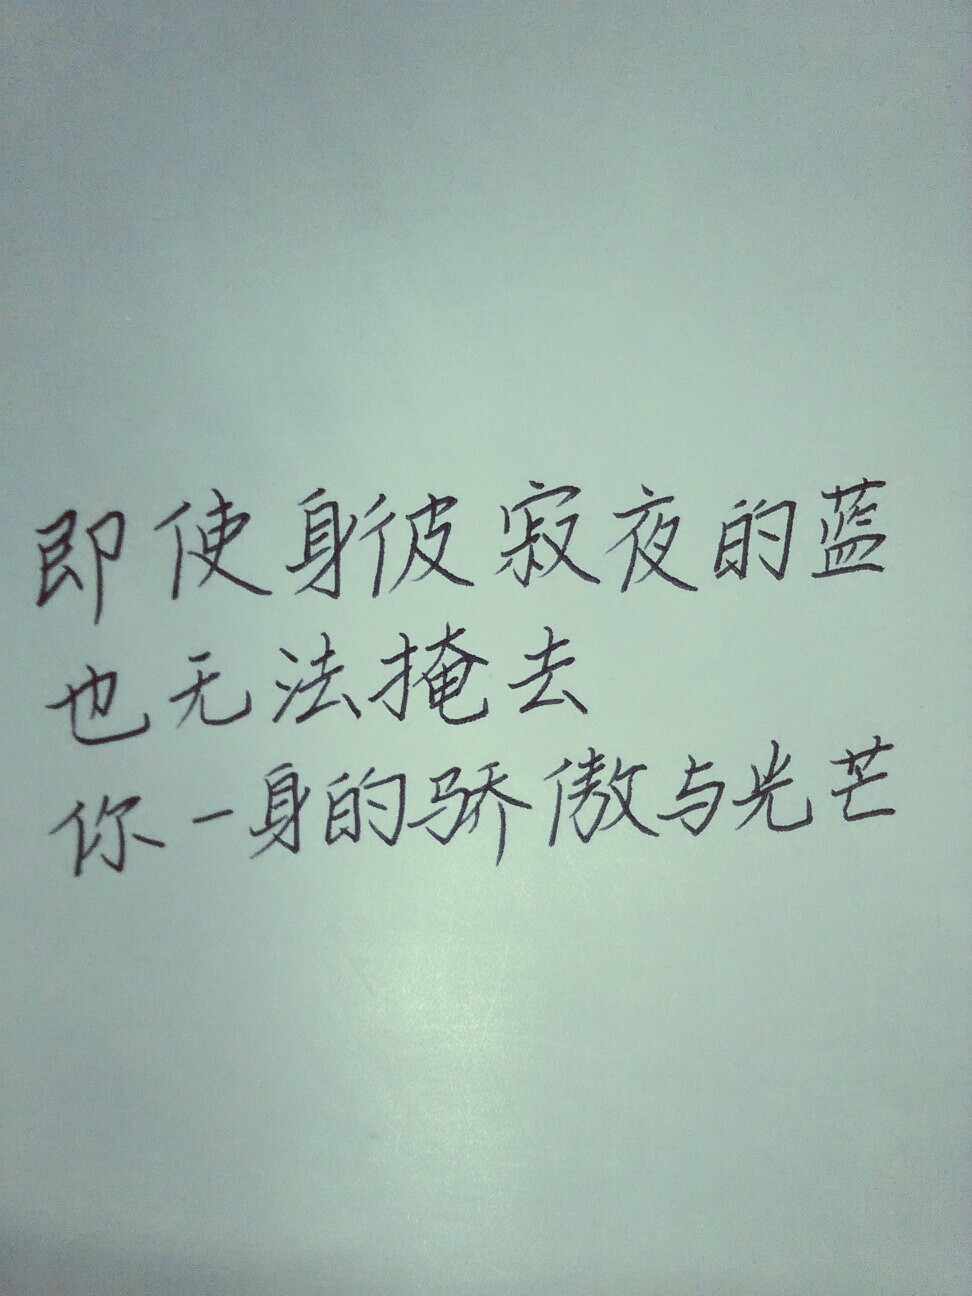 即使身彼寂夜的蓝
也无法掩去
你一身的骄傲与光芒